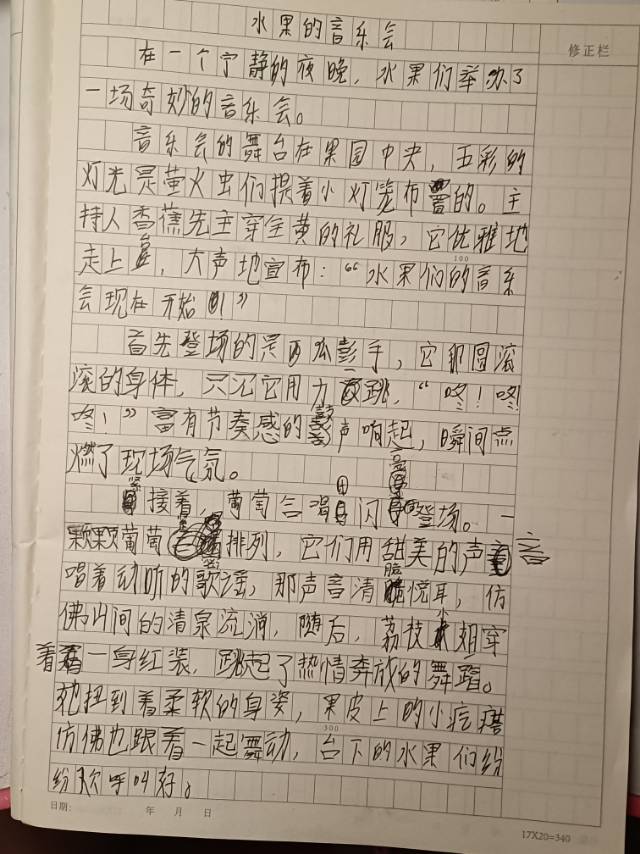 水果的音乐会
修正栏
在一个宁静的夜晚，水果们举办了
一场奇妙的音乐会。
音乐会的舞台在果园中央，五彩的
灯光是萤火虫们提着小灯笼布置的。主
持人香蕉先主穿全黄的礼服，它优雅地
100
走上台，大声地宣布：“水果们的音乐
会现在开始！”
首先登场的是西瓜彭手，它那圆滚
滚的身体，只见它用力一跳，“咚！咚！
咚！”富有节奏感的鼓声响起，瞬间点
燃了现场气氛。
紧接着，葡萄合唱闪亮登场。一
颗颗葡萄排列，它们用甜美的声音
唱着动听的歌谣，那声音清脆悦耳，仿
佛山间的清泉流淌，随后，荔枝小姐穿
着一身红装，跳起了热情奔放的舞蹈。
她扭到着柔软的身姿，果皮上的小疙瘩
300
仿佛也跟着一起舞动，台下的水果们纷
纷欢呼叫好。
日期： 年 月 日
17X20=340